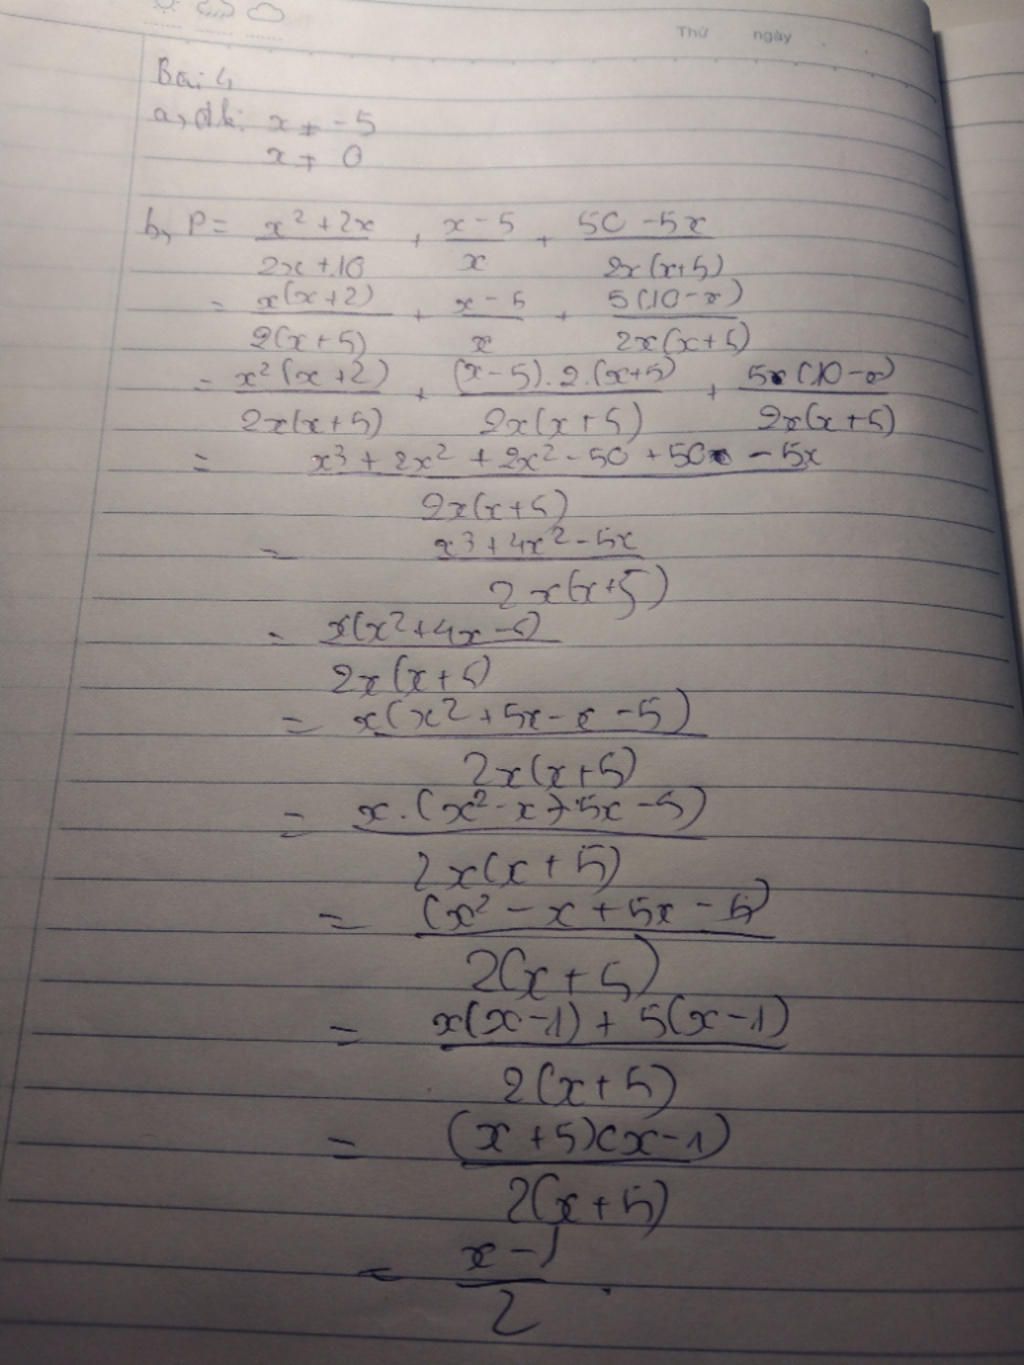 Thứ ngày
Bài 4
a, đk: x ≠ -5
x ≠ 0
b, P = (x² + 2x)/(2x + 10) + (x - 5)/x + (50 - 5x)/(2x(x+5))
= x(x+2)/(2(x+5)) + (x - 5)/x + 5(10 - x)/(2x(x+5))
= x²(x+2)/(2x(x+5)) + (x-5).2.(x+5)/(2x(x+5)) + 5(10-x)/(2x(x+5))
= (x³ + 2x² + 2x² - 50 + 50 - 5x)/(2x(x+5))
= (x³ + 4x² - 5x)/(2x(x+5))
= x(x² + 4x - 5)/(2x(x+5))
= x(x² + 5x - x - 5)/(2x(x+5))
= x.(x² - x + 5x - 5)/(2x(x+5))
= (x² - x + 5x - 5)/(2(x+5))
= (x(x-1) + 5(x-1))/(2(x+5))
= (x+5)(x-1)/(2(x+5))
= (x - 1)/2.